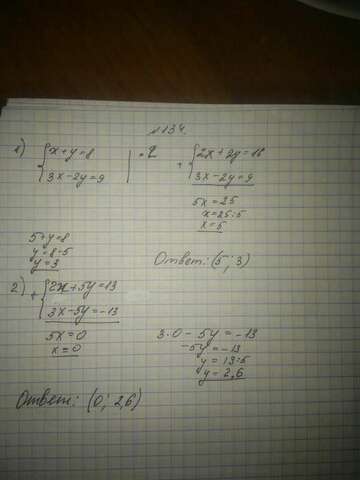 №134.
1) {x+y=8 | ·2 + {2x+2y=16
{3x-2y=9 {3x-2y=9
5x=25
x=25:5
x=5
5+y=8
y=8-5
y=3
Ответ: (5; 3)
2) + {2x+5y=13
{3x-5y=-13
5x=0
x=0
3·0-5y=-13
-5y=-13
y=13:5
y=2,6
Ответ: (0; 2,6)